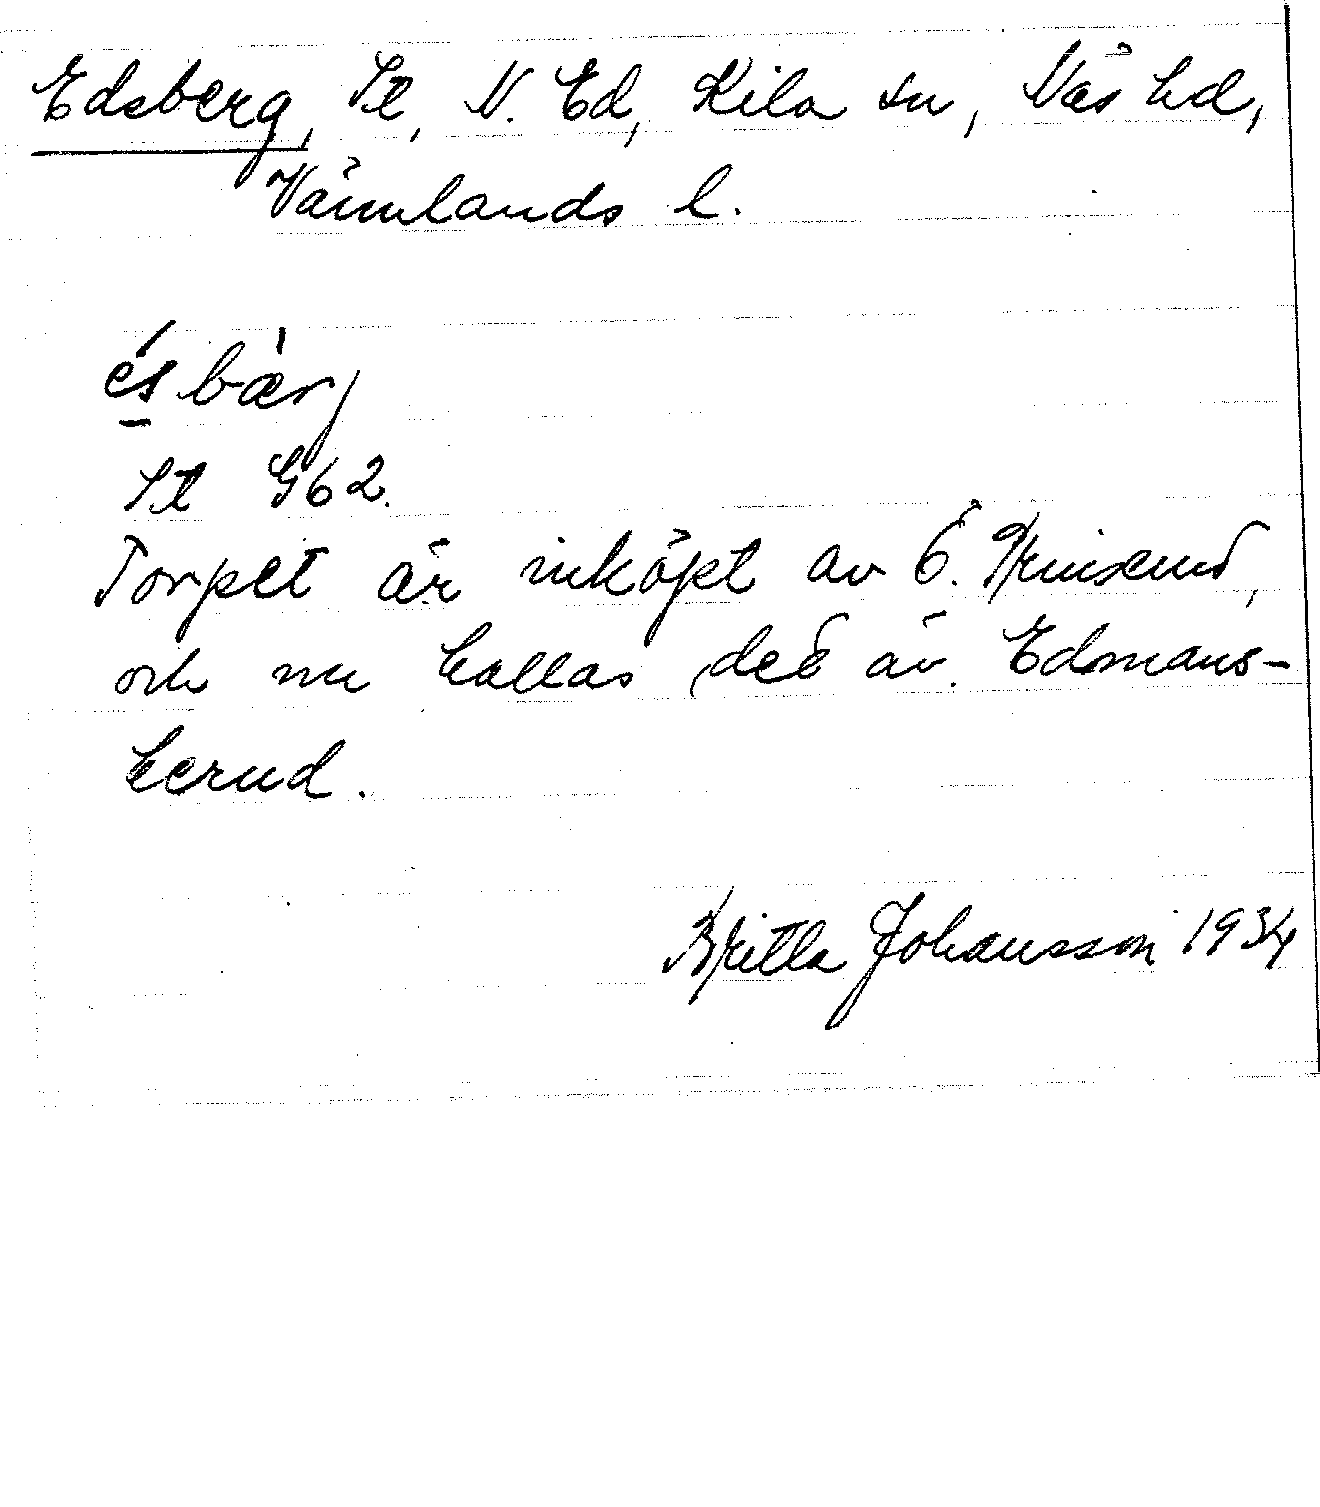 Edsberg, St, N. Ed, Kila sn, Näs hd,
Värmlands l.
ésbær
St G62.
Torpet är inköpt av Ö.
och nu kallas det äv. Edmans-
kerud.
Britta Johansson 1934